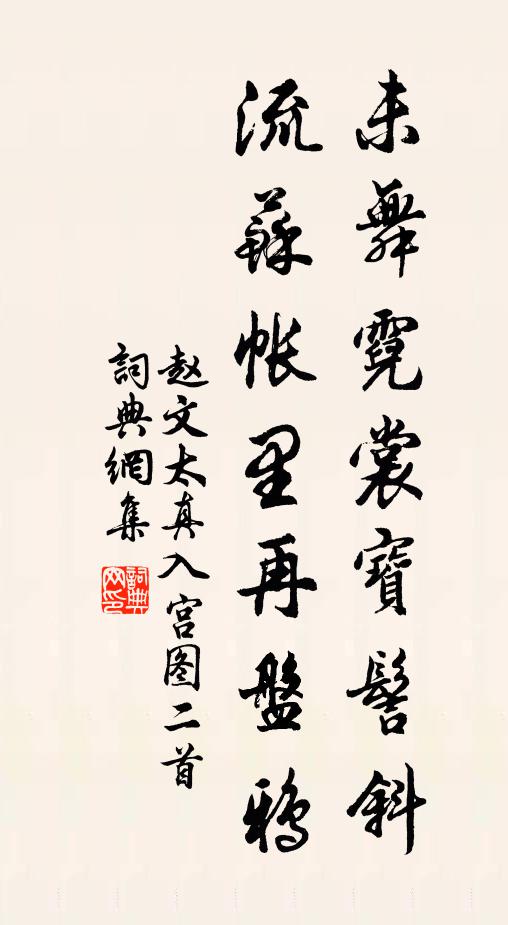 未舞霓裳寶髻斜
流蘇帐里再盤鴉
赵文太真入宫图二首
詞典網集
詞典
网印